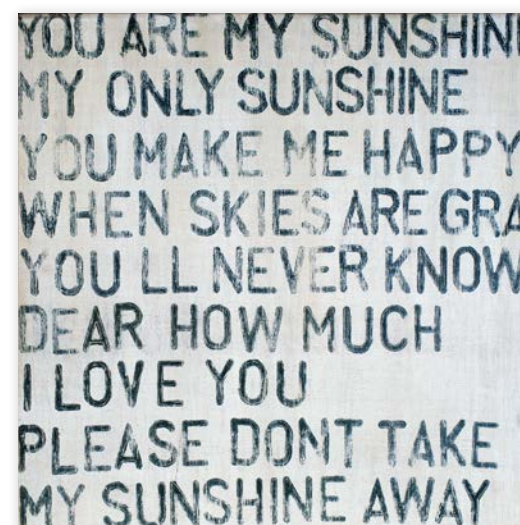 YOU ARE MY SUNSHINE
MY ONLY SUNSHINE
YOU MAKE ME HAPPY
WHEN SKIES ARE GRA
YOU LL NEVER KNOW
DEAR HOW MUCH
I LOVE YOU
PLEASE DONT TAKE
MY SUNSHINE AWAY